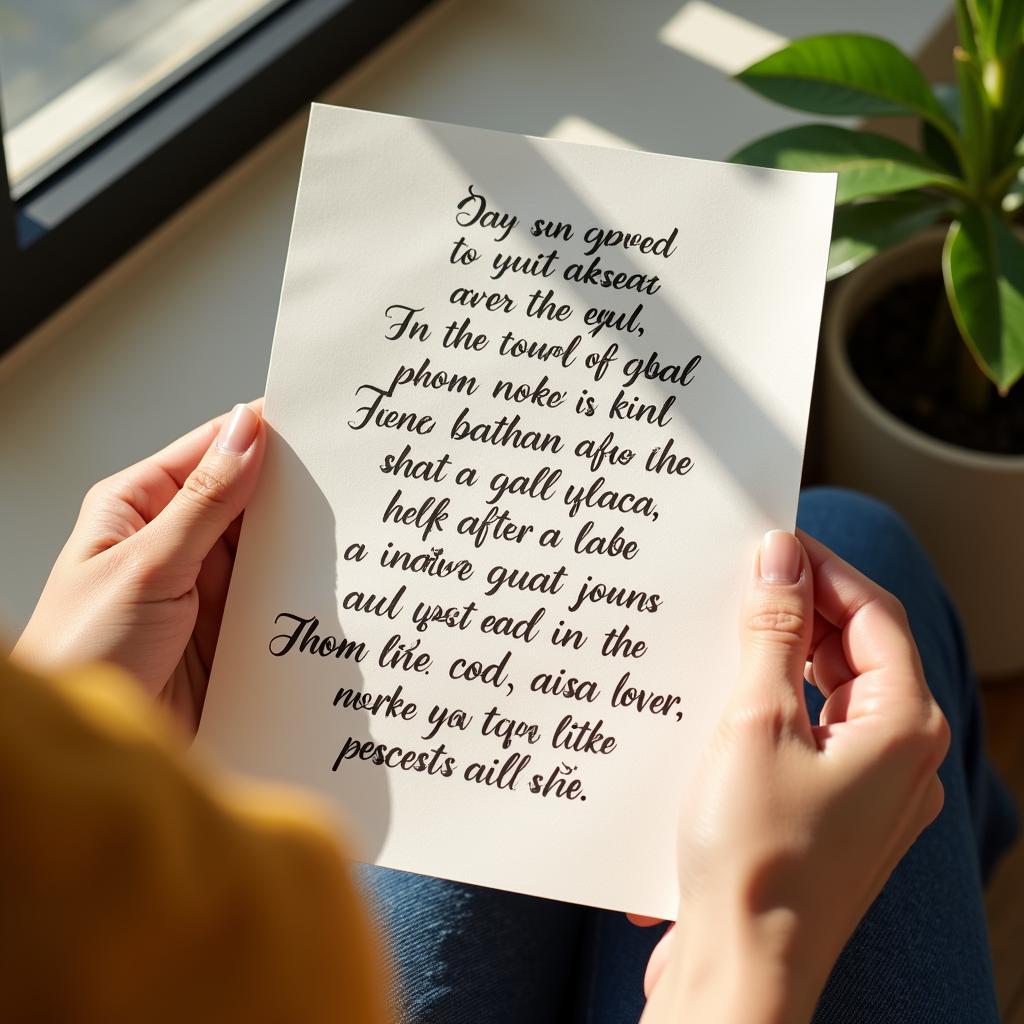 Day sun gpveed
to yuit akseat
aver the eyul,
In the tourl of gbal
phom noke is kinl
Tiene bathan afro the
shat a gall ylaca,
helk after a labe
a inative guat jouns
aul ypst ead in the
Thom live. cod, aisa lover,
nurke ya tqpa litke
pescests aill she.